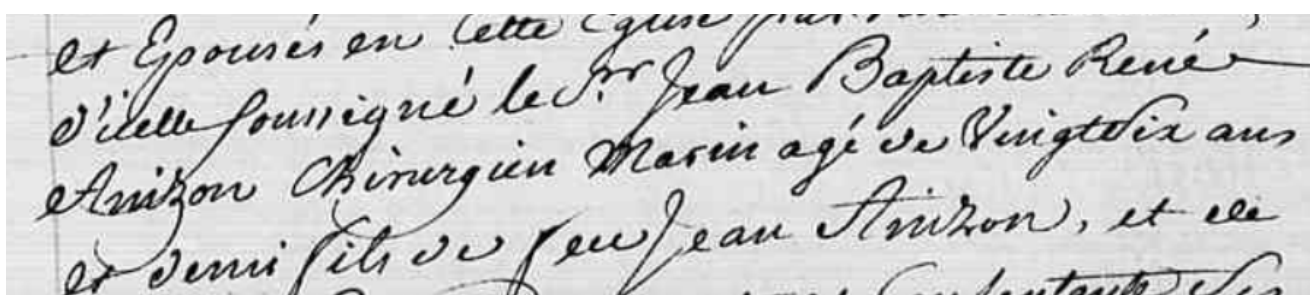 et Epousés en Cette Eglise par
d'icelle soussigné le Sr. Jean Baptiste René
Anizon Chirurgien Marin agé de Vingt Six ans
et demi fils de feu Jean Anizon, et de